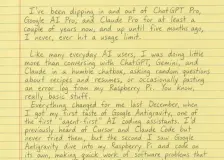 I've been dipping in and out of ChatGPT Pro,
Google AI Pro, and Claude Pro for at least a
couple of years now, and up until five months ago,
I never, ever hit a usage limit.
Like many everyday AI users, I was doing little
more than conversing with ChatGPT, Gemini, and
Claude in a humble chatbox, asking random questions
about recipes and resumes, or occasionally pasting
an error log from my Raspberry Pi. You know,
really basic stuff.
Everything changed for me last December, when
I got my first taste of Google Antigravity, one of
the first "agent-first" AI coding assistants. I'd
previously heard of Cursor and Claude Code but
never tried them, but the second I saw Google
Antigravity dive into my Raspberry Pi and code on
its own, making quick work of software problems that